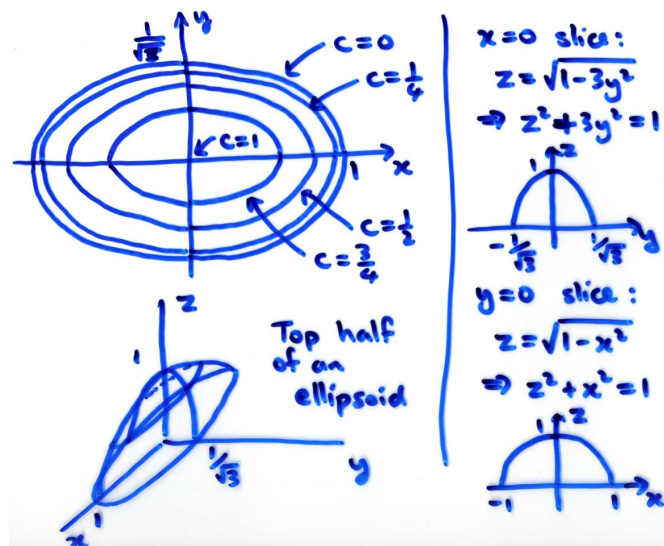 y
1/√3
c=0
c=1/4
c=1
x
1
c=1/2
c=3/4
z
1
Top half
of an
ellipsoid
1/√3
y
1
x
x=0 slice:
z=√(1-3y²)
⇒ z²+3y²=1
z
1
-1/√3
1/√3
y
y=0 slice:
z=√(1-x²)
⇒ z²+x²=1
z
1
-1
1
x